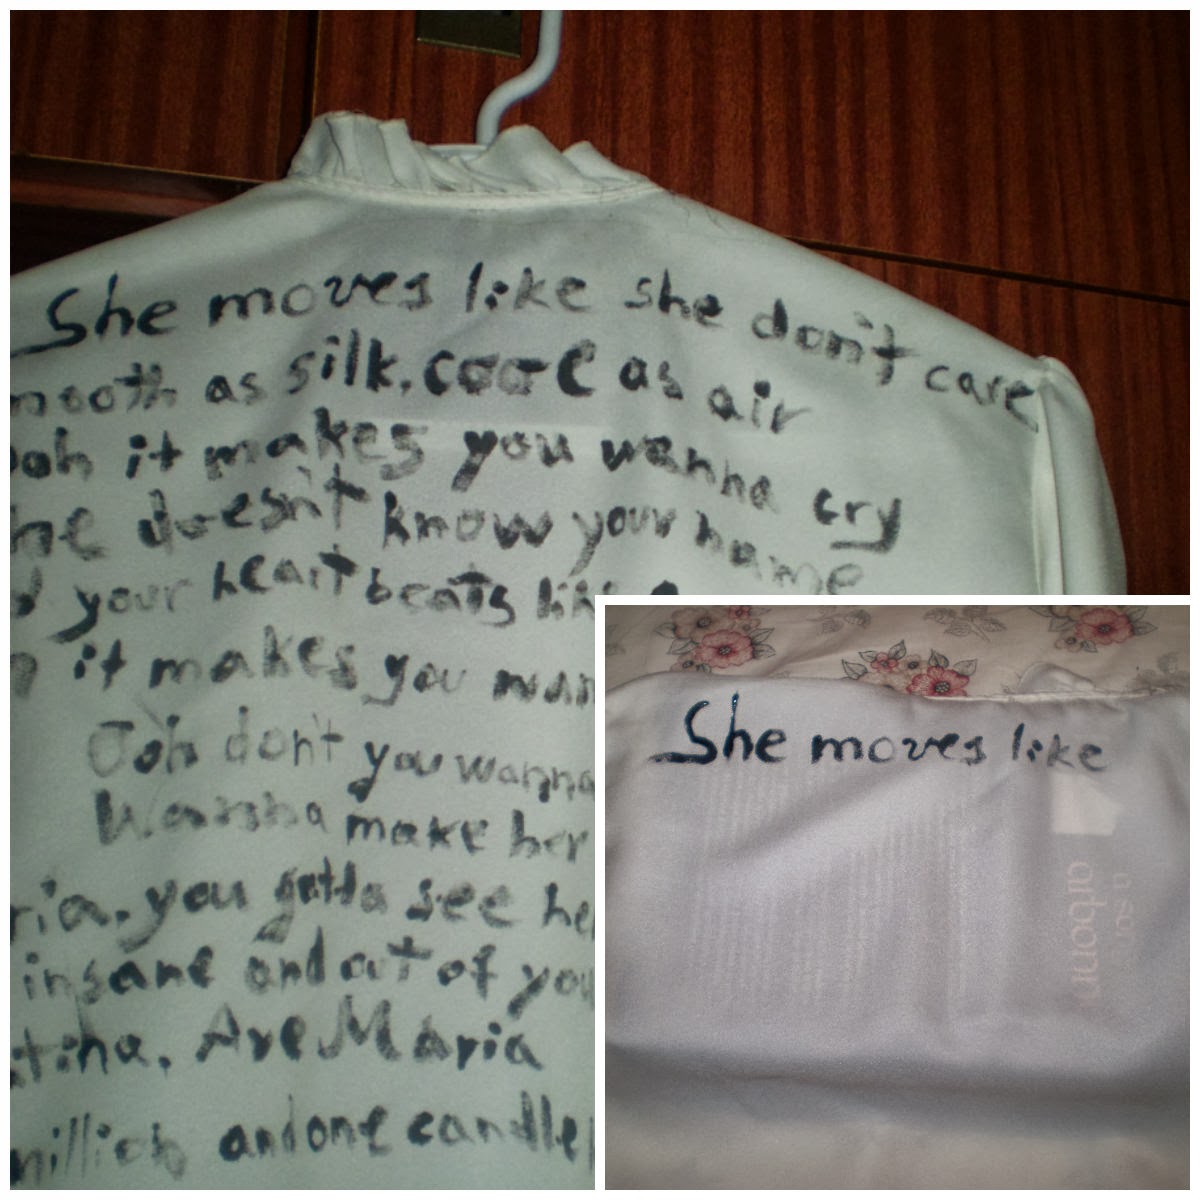 She moves like she don't care
mooth as silk, cool as air
ooh it makes you wanna cry
he doesn't know your name
d your heart beats like
it makes you wan
Ooh don't you wanna
Wanna make her
ria. you gotta see he
insane and out of you
tina. Ave Maria
million and one candle
She moves like